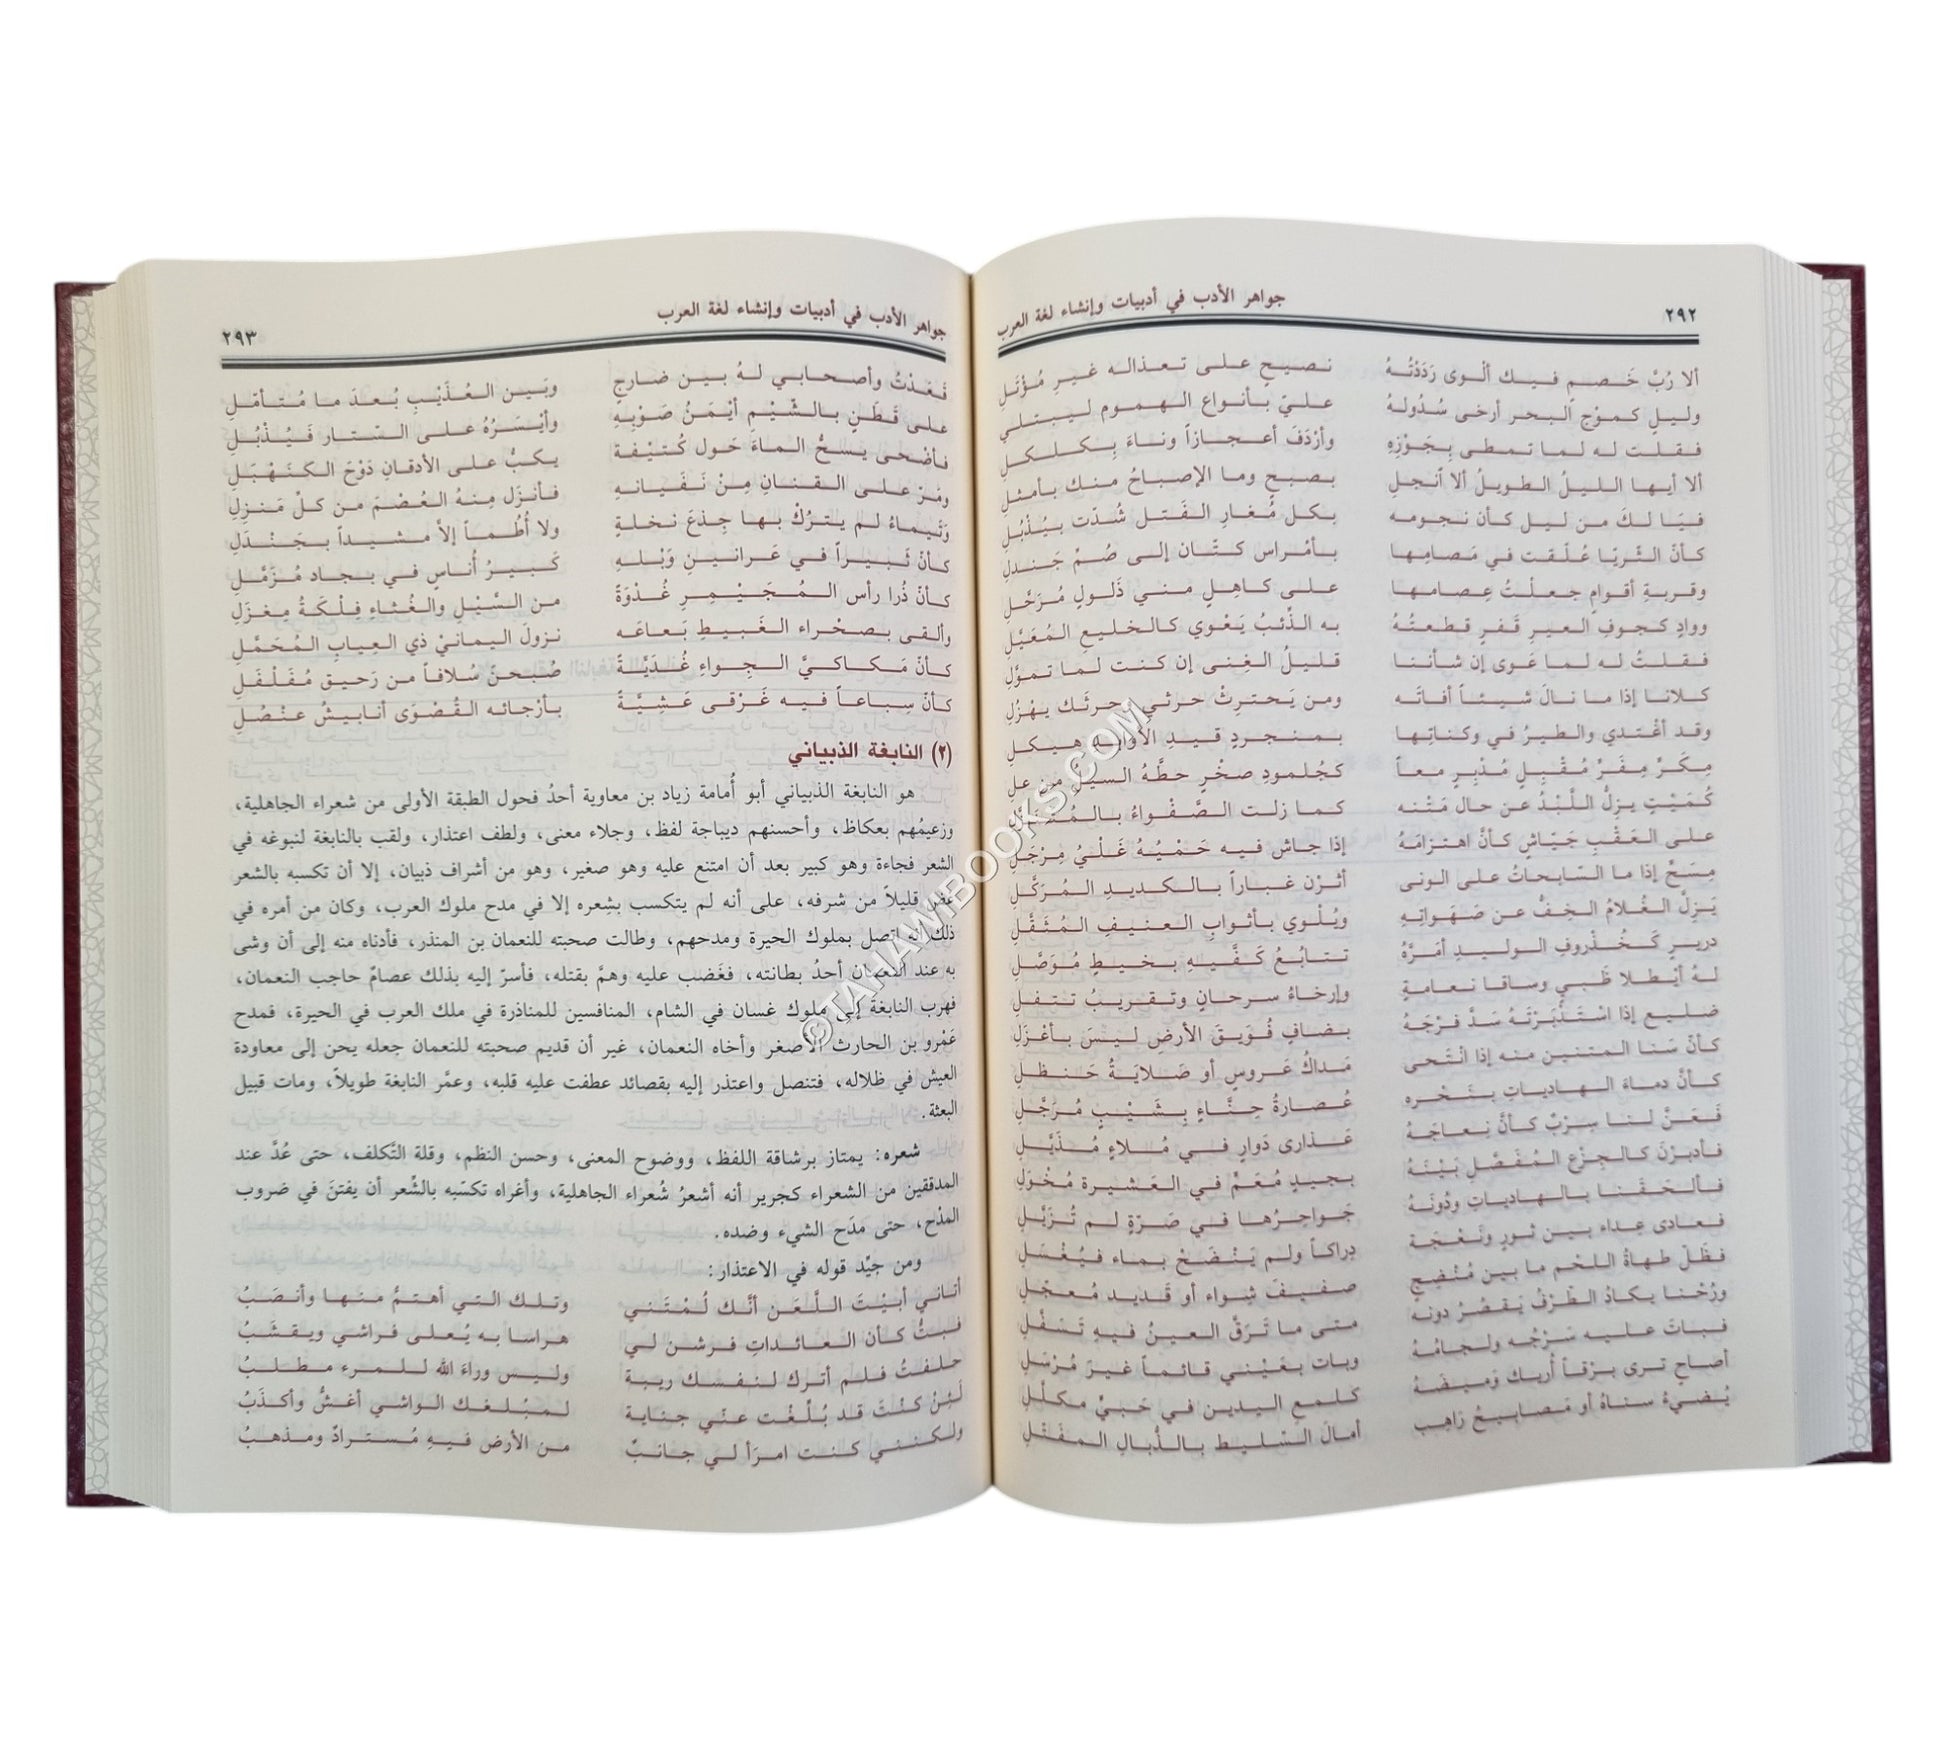 ٢٩٢
جواهر الأدب في أدبيات وإنشاء لغة العرب
ألا رُبَّ خَصمٍ فيك ألْوى رَدَدْتُهُ نصيحٍ على تعذاله غيرِ مُؤْتَلِ
وليلٍ كموْج البحر أرخى سُدُولهُ عليّ بأنواع الهموم ليبتلي
فقلت له لما تمطى بِجَوْزِهِ وأرْدَفَ أعجازاً وناءَ بِكلكلِ
ألا أيها الليلُ الطويلُ ألا آنجلِ بصبحٍ وما الإصباحُ منك بأمثلِ
فيَا لكَ من ليل كأن نجومه بكل مُغارِ الفَتل شُدّت بيُذْبُلِ
كأنّ الثّريّا عُلّقت في مَصامِها بأمْراس كتّان إلى صُمِّ جَندلِ
وقربةِ أقوامٍ جعلْتُ عِصامها على كاهِلٍ مني ذَلولٍ مُرَحَّلِ
ووادٍ كجوفِ العيرِ قَفرٍ قطعتُهُ به الذِّئبُ يَعْوي كالخليعِ المُعَيَّلِ
فقلتُ له لما عَوى إن شأننا قليلُ الغِنى إن كنت لما تموَّلِ
كلانا إذا ما نالَ شيئاً أفاتَه ومن يَحترِثْ حرثي وحرثَك يهْزُلِ
وقد أغْتدي والطيرُ في وكناتِها بمنجردٍ قيدِ الأوابدِ هيكلِ
مِكَرٍّ مِفَرٍّ مُقْبِلٍ مُدْبِرٍ معاً كجُلمودِ صخْرٍ حطَّهُ السيلُ من علِ
كُمَيْتٍ يزِلُّ اللِّبْدُ عن حال مَتْنه كما زلت الصَّفْواءُ
على العَقْبِ جَيّاشٍ كأنَّ اهتزامَهُ إذا جاش فيه حَمْيُهُ غَلْيُ مِرْجَلِ
مِسَحٍّ إذا ما السّابحاتُ على الونى أثرْن غباراً بالكديدِ المُرَكَّلِ
يَزِلُّ الغُلامُ الخِفُّ عن صَهَواتِهِ ويُلْوي بأثوابِ العنيفِ المُثَقَّلِ
دريرٍ كَخُذْروفِ الوليدِ أمَرَّهُ تتابُعُ كَفَّيْهِ بخيطٍ مُوَصَّلِ
لهُ أيْطلا ظَبيٍ وساقا نعامةٍ وإرخاءُ سرحانٍ وتقريبُ تتفلِ
ضليع إذا اسْتَدْبَرْتَهُ سَدَّ فرْجَهُ بضافٍ فُوَيقَ الأرضِ ليسَ بأعْزَلِ
كأنّ سَنا المتنين منه إذا انْتَحى مَداكُ عَروسٍ أو صَلايَةُ حَنظلِ
كأنَّ دماءَ الهادياتِ بنَحْره عُصارةُ حِنّاءٍ بِشَيْبٍ مُرَجَّلِ
فَعَنَّ لنا سِرْبٌ كأنَّ نِعاجَهُ عَذارى دَوارٍ في مُلاءٍ مُذَيَّلِ
فأدبرْنَ كالجِزْعِ المُفَصَّلِ بَيْنَهُ بجيدٍ مُعَمٍّ في العَشيرة مُخْوَلِ
فألحَقَنا بالهادياتِ ودُونَهُ جَواحِرُها في صَرّةٍ لم تُزَيَّلِ
فعادى عِداء بين ثورٍ ونَعْجَة دِراكاً ولم يَنْضَحْ بماء فيُغْسَلِ
فظَلّ طهاةُ اللحْم ما بين مُنْضِجٍ صفيفَ شِواء أو قَديد مُعجّلِ
ورُحْنا يكادُ الطّرْفُ يَقصُرُ دونه متى ما تَرَقَّ العينُ فيهِ تَسَفَّلِ
فباتَ عليه سَرْجُه ولجامُهُ وبات بعَيْني قائماً غيرَ مُرْسَلِ
أصاحِ ترى بَرْقاً أُريك وَميضَهُ كلمعِ اليدين في حَبيٍّ مكلّلِ
يُضيءُ سناهُ أو مَصابيحُ رَاهِب أمالَ السّليط بالذُّبالِ المفتّلِ
جواهر الأدب في أدبيات وإنشاء لغة العرب
٢٩٣
قَعَدْتُ وأصحابي لهُ بين ضارجٍ وبَين العُذَيْبِ بُعدَ ما مُتأمّلِ
على قَطَنٍ بالشَّيْمِ أيْمَنُ صَوْبِهِ وأيْسَرُهُ على السّتار فَيُذْبُلِ
فأضْحى يسحُّ الماءَ حَول كُتيْفة يكبُّ على الأذقانِ دَوْحَ الكَنَهْبَلِ
ومَرَّ على القنانِ مِنْ نَفَيانِهِ فأنزَل مِنهُ العُصْمَ من كلِّ مَنزِلِ
وَتَيماءُ لم يترُكْ بها جِذعَ نخلةٍ ولا أُطُماً إلاَّ مشيداً بجَنْدَلِ
كأنّ ثَبيراً في عَرانينِ وَبْلهِ كَبيرُ أُناسٍ في بجاد مُزَمَّلِ
كأنّ ذُرا رأس المُجَيْمِرِ غُدْوَةً من السَّيْلِ والغُثاءِ فِلْكَةُ مِغزَلِ
وألقى بصحْراء الغَبيطِ بَعاعَه نزولَ اليمانيْ ذي العِيابِ المُحَمَّلِ
كأنّ مَكاكيَّ الجِواءِ غُدَيَّةً صُبحنَ سُلافاً من رَحيق مُفَلْفَلِ
كأنّ سِباعاً فيه غَرْقى عَشِيَّةً بأرْجائه القُصْوَى أنابيشُ عنْصُلِ
(٢) النابغة الذبياني
هو النابغة الذبياني أبو أُمامة زياد بن معاوية أحدُ فحول الطبقة الأولى من شعراء الجاهلية،
وزعيمُهم بعكاظ، وأحسنهم ديباجة لفظ، وجلاء معنى، ولطف اعتذار، ولقب بالنابغة لنبوغه في
الشعر فجاءة وهو كبير بعد أن امتنع عليه وهو صغير، وهو من أشراف ذبيان، إلا أن تكسبه بالشعر
غض قليلاً من شرفه، على أنه لم يتكسب بشِعره إلا في مدح ملوك العرب، وكان من أمره في
ذلك أنه اتصل بملوك الحيرة ومدحهم، وطالت صحبته للنعمان بن المنذر، فأدناه منه إلى أن وشى
به عند النعمان أحدُ بطانته، فغَضب عليه وهمَّ بقتله، فأسرّ إليه بذلك عصامٌ حاجب النعمان،
فهرب النابغة إلى ملوك غسان في الشام، المنافسين للمناذرة في ملك العرب في الحيرة، فمدح
عَمْرو بن الحارث الأصغر وأخاه النعمان، غير أن قديم صحبته للنعمان جعله يحن إلى معاودة
العيش في ظلاله، فتنصل واعتذر إليه بقصائد عطفت عليه قلبه، وعمَّر النابغة طويلاً، ومات قبيل
البعثة.
شعره: يمتاز برشاقة اللفظ، ووضوح المعنى، وحسن النظم، وقلة التّكلف، حتى عُدَّ عند
المدققين من الشعراء كجرير أنه أشعرُ شُعراء الجاهلية، وأغراه تكسّبه بالشّعر أن يفتنّ في ضروب
المدْح، حتى مدَح الشيء وضده.
ومن جيِّد قوله في الاعتذار:
أتاني أبيْتَ اللَّعَن أنَّك لُمْتَني وتلك التي أهتمُّ منها وأنصَبُ
فبتُّ كأن العائداتِ فرشن لي هراسا به يُعلى فراشي ويقشَبُ
حلفتُ فلم أترك لنفسك ريبة وليس وراءَ الله للمرء مطلبُ
لَئِنْ كنْتَ قد بُلّغْت عنّي جناية لمبْلغك الواشي أغشُّ وأكذَبُ
ولكنني كنت امرَأ لي جانبٌ من الأرض فيهِ مُسترادٌ ومذهبُ
©TAHAMIBOOKS.COM